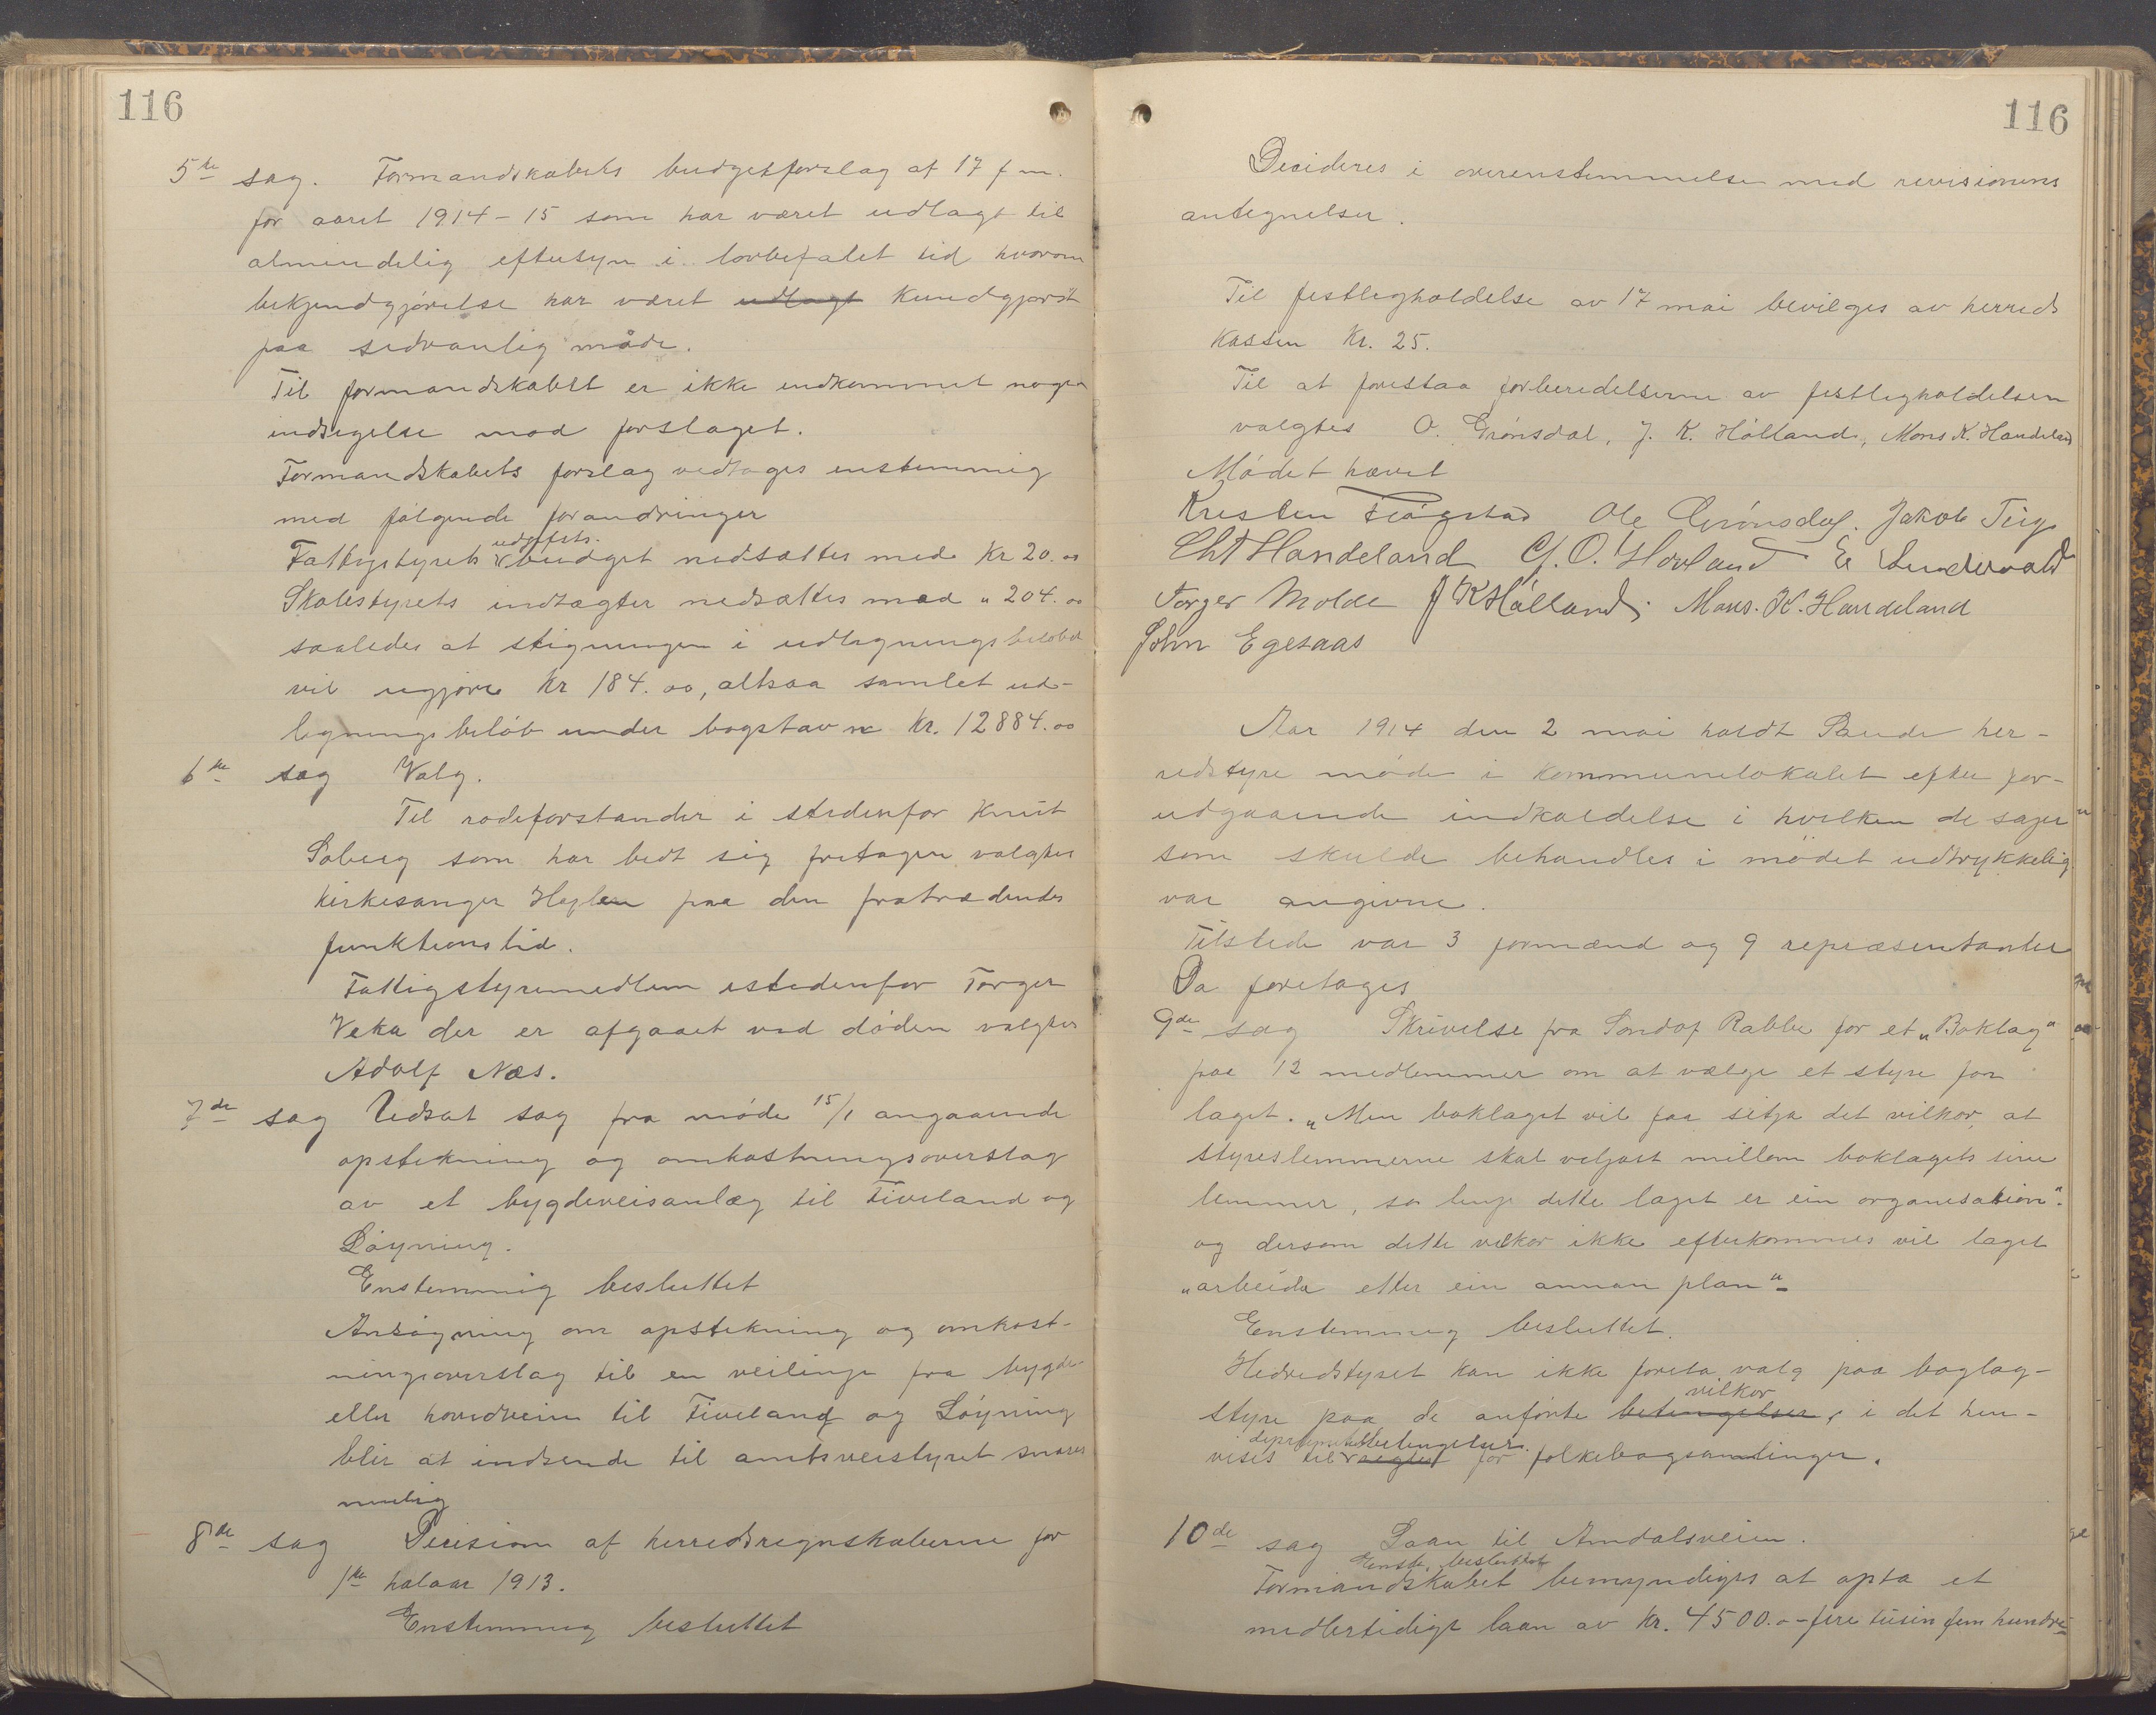 116
5te sag. Formandskabets budgetforslag af 17 f m.
for aaret 1914-15 som har været udlagt til
almindelig eftersyn i lovbefalet tid hvorom
bekjendgjørelse har været udlagt kundgjort
paa sedvanlig måde.
Til formandskabet er ikke indkommet nogen
indsigelse mod forslaget.
Formandskabets forslag vedtages enstemmig
med følgende forandringer
udgifts.
Fattigstyrets budget nedsættes med Kr 20.00
Skolestyrets indtægter nedsættes med " 204.00
saaledes at stigningen i udligningsbeløbet
vil ugjøre Kr 184.00, altsaa samlet ud-
ligningsbeløb under bogstav Kr. 12884.00
6te sag Valg.
Til rodeforstander i stedenfor Knut
Soberg som har bedt sig fretagen valgtes
kirkesanger Heglen paa den fratrædendes
funktionstid.
Fattigstyremedlem istedenfor Torger
Veka der er afgaaet ved døden valgtes
Adolf Næs.
7de sag Udsat sag fra møde 15/1 angaaende
opstikning og omkostningsoverslag
av et bygdeveisanlæg til Fiveland og
Løyning.
Enstemmig besluttet
Ansøgning om opstikning og omkost-
ningsoverslag til en veilinje fra bygde-
eller hovedveien til Fiveland og Løyning
blir at indsende til amtsveistyret snares
menlig
8de sag Decision af herredsregnskaberne for
1ste halaar 1913.
Enstemmig besluttet
116
Decideres i overenstemmelse med revisionens
antegnelser.
Til festligholdelse av 17 mai bevilges av herreds
kassen Kr. 25.
Til at forestaa forberedelserne av festligholdelsen
valgtes O. Grønsdal, J. K. Hålland, Mons K. Handeland
Mødet hævet
Kresten Frøgstad Ole Grønsdal. Jakob Teig
Cht Handeland O. Hovland
Torger Molde J K Hålland; Mons. K. Handeland
John Egesaas
Aar 1914 den 2 mai holdt Sande her-
redstyre møde i kommunelokalet efter for-
udgaaende indkaldelse i hvilken de sager
som skulde behandles i mødet udtrykkelig
var angivne.
Tilstede var 3 formænd og 9 repræsentanter
Da foretages
9de sag Skrivelse fra Rabbe for et „Boklag"
paa 12 medlemmer om at vælge et styre for
laget. „Men boklaget vil faa sitja det vilkor, at
styreslemmerne skal veljast millom boklagets sine
lemmer, so lenge dette laget er ein organisation".
og dersom dette vilkor ikke efterkommes vil laget
„arbeida etter ein annan plan".
Enstemmig besluttet.
Hedredstyret kan ikke foreta valg paa boglag-
vilkor
styre paa de anførte betingelser, i det hen-
betingelser.
vises til for folkebogsamlinger.
10de sag Laan til Amdalsveien.
Enst. besluttet
Formandskabet bemyndiges at opta et
medlertidigt laan av Kr. 4500.- fire tusin fem hundre